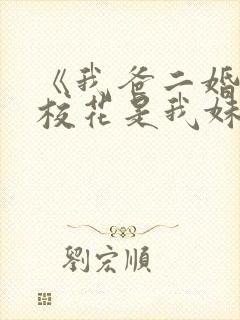 《我爸二婚
校花是我妹
劉宏順